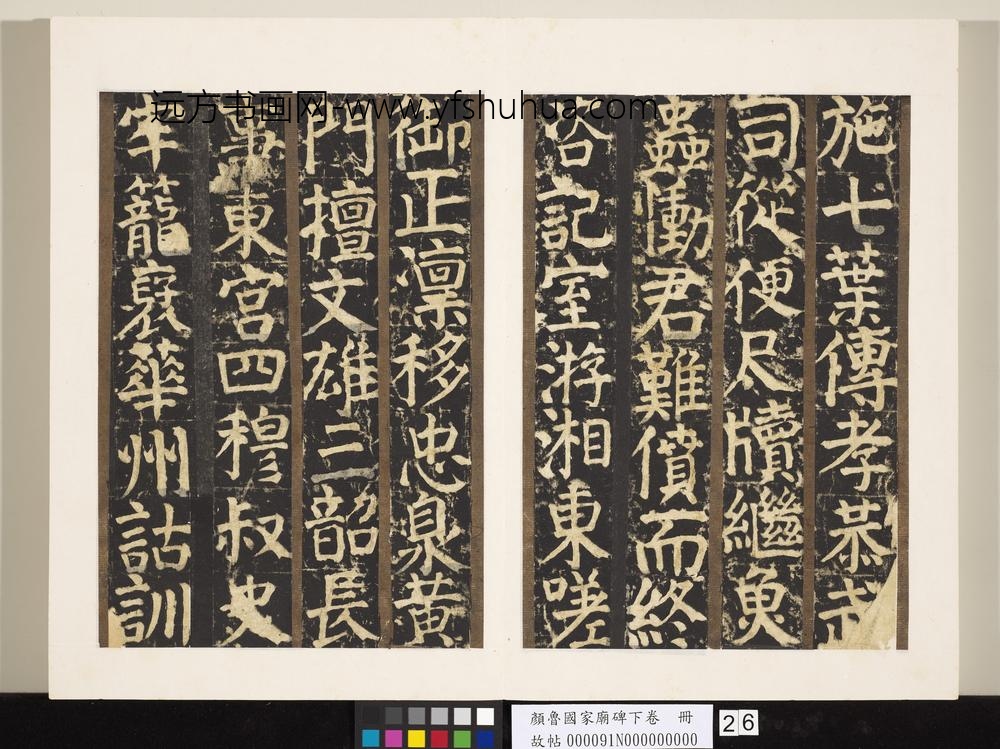 远方书画网-www.yfshuhua.com
施七葉傳孝恭
司從便尺牘繼魚
蟲慟君難憤而終
咨記室游湘東嗟
御正凛移忠臮黃
門擅文雄三韶長
事東宮四穆叔史
牢籠華州詁訓
顏魯國家廟碑下卷 冊
故帖 000091N000000000
26